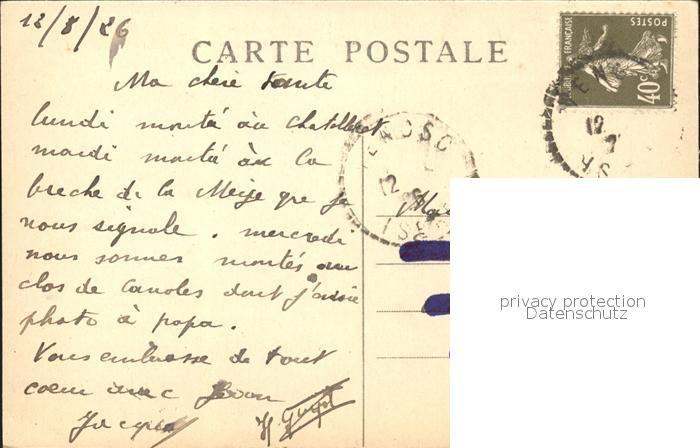 12/8/26
CARTE POSTALE
POSTES
40c
Ma chère tante
lundi monté au Chatelleret
mardi monté à la
breche de la Meije que je
vous signale. mercredi
nous sommes montés au
clos de Cavales dont j'envoie
photo à papa.
Vous embrasse de tout
coeur avec
Jacques
VENOSC
12
ISÈRE
VEN
12
privacy protection
Datenschutz